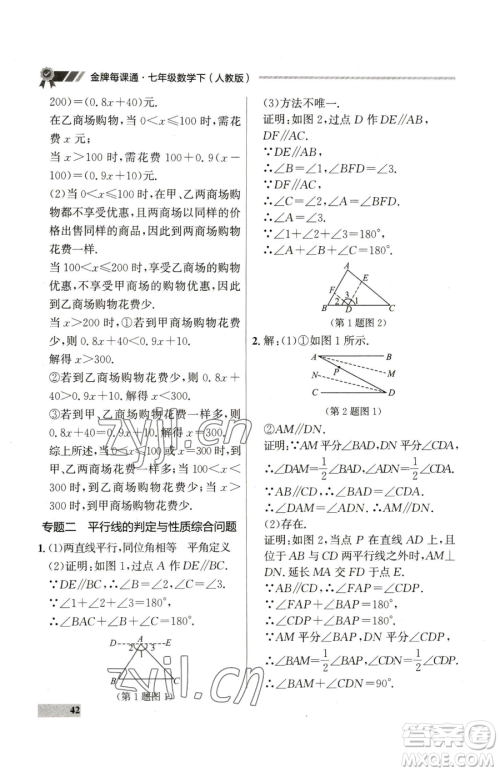 金牌每课通·七年级数学下（人教版）
200)=(0.8x+40)元.
在乙商场购物,当0<x≤100时,需花
费x元;
当x>100时,需花费100+0.9(x-
100)=(0.9x+10)元.
(2)当0<x≤100时,在甲、乙两商场购
物都不享受优惠,且两商场以同样的价
格出售同样的商品,因此到两商场购物
花费一样.
当100<x≤200时,享受乙商场的购物
优惠,到乙商场购物花费少.
当x>200时,①若到甲商场购物花费
少,则0.8x+40<0.9x+10.
解得x>300.
②若到乙商场购物花费少,则
0.8x+40>0.9x+10.解得x<300.
③若到甲、乙两商场购物花费一样,则
0.8x+40=0.9x+10.解得x=300.
综上所述,当0<x≤100或x=300时,到
甲、乙两商场购物花费一样多;当100<
x<300时,到乙商场购物花费少;当x>
300时,到甲商场购物花费少.
专题二 平行线的判定与性质综合问题
1.(1)两直线平行,同位角相等 平角定义
(2)证明:如图1,过点A作DE//BC.
∵DE//BC,∴∠B=∠2,∠C=∠3.
∵∠1+∠2+∠3=180°,
∴∠1+∠B+∠C=180°.
D A E
2 1 3
B C
(第1题图1)
42
(3)方法不唯一.
证明:如图2,过点D作DE//AB,
DF//AC.
∵DE//AB,
∴∠B=∠1,∠BFD=∠A.
∵DF//AC,
∴∠C=∠2,∠A=∠BFD.
∵∠1+∠2+∠3=180°,
∴∠A+∠B+∠C=180°.
A
E
F
3
2 1
B D C
(第1题图2)
2.解:(1)①如图1所示.
A B
N P M
C D
(第2题图1)
②AM//DN.
证明:∵AM平分∠BAD,DN平分∠CDA,
∴∠DAM=1/2∠BAD,∠ADN=1/2∠CDA.
∵AB//CD,∴∠BAD=∠CDA.
∴∠DAM=∠ADN.
∴AM//DN.
(2)存在.
证明:如图2,当点P在直线AD上,且
位置在两平行线之外时,AM
⊥DN.延长MA交CD于点E.
∵AB//CD,
∴∠FAP+∠BAP=180°,
∠FAP=∠CDP.
∴∠CDP+∠BAP=180°.
∵AM平分∠BAP,DN平分∠CDP,
∴1/2∠BAP+1/2∠CDP=90°.
∴∠BAM+∠CDN=90°.
zyjl.cn
zyjl.cn